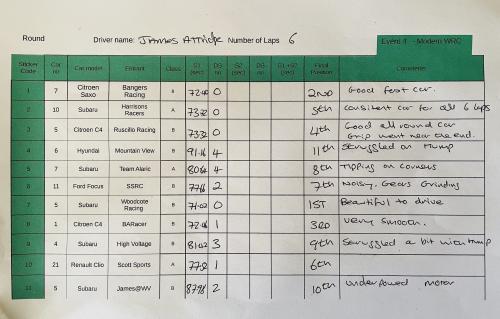 Round Driver name: James Attride Number of Laps 6
Event 4 - Modern WRC
Sticker Code Car no Car model Entrant Class S1 (sec) DS no S2 (sec) DS no S1+S2 (sec) Final Position Comments
1 7 Citroen Saxo Bangers Racing B 72.00 0 2ND Good fast car.
2 10 Subaru Harrisons Racers A 73.32 0 5th consistent car for all 6 laps
3 5 Citroen C4 Ruscillo Racing B 73.20 0 4th Good all round car
Grip went near the end.
4 6 Hyundai Mountain View B 91.16 4 11th Struggled on Hump
5 7 Subaru Team Alaric A 80.64 4 8th Tipping on corners
6 11 Ford Focus SSRC B 77.16 2 7th Noisy. Gears Grinding
7 5 Subaru Woodcote Racing B 71.02 0 1ST Beautiful to drive
8 1 Citroen C4 BARacer B 72.06 1 3RD very smooth.
9 4 Subaru High Voltage B 81.02 3 9th Struggled a bit with hump
10 21 Renault Clio Scott Sports A 77.52 1 6th
11 5 Subaru James@WV B 87.98 2 10th underpowered motor